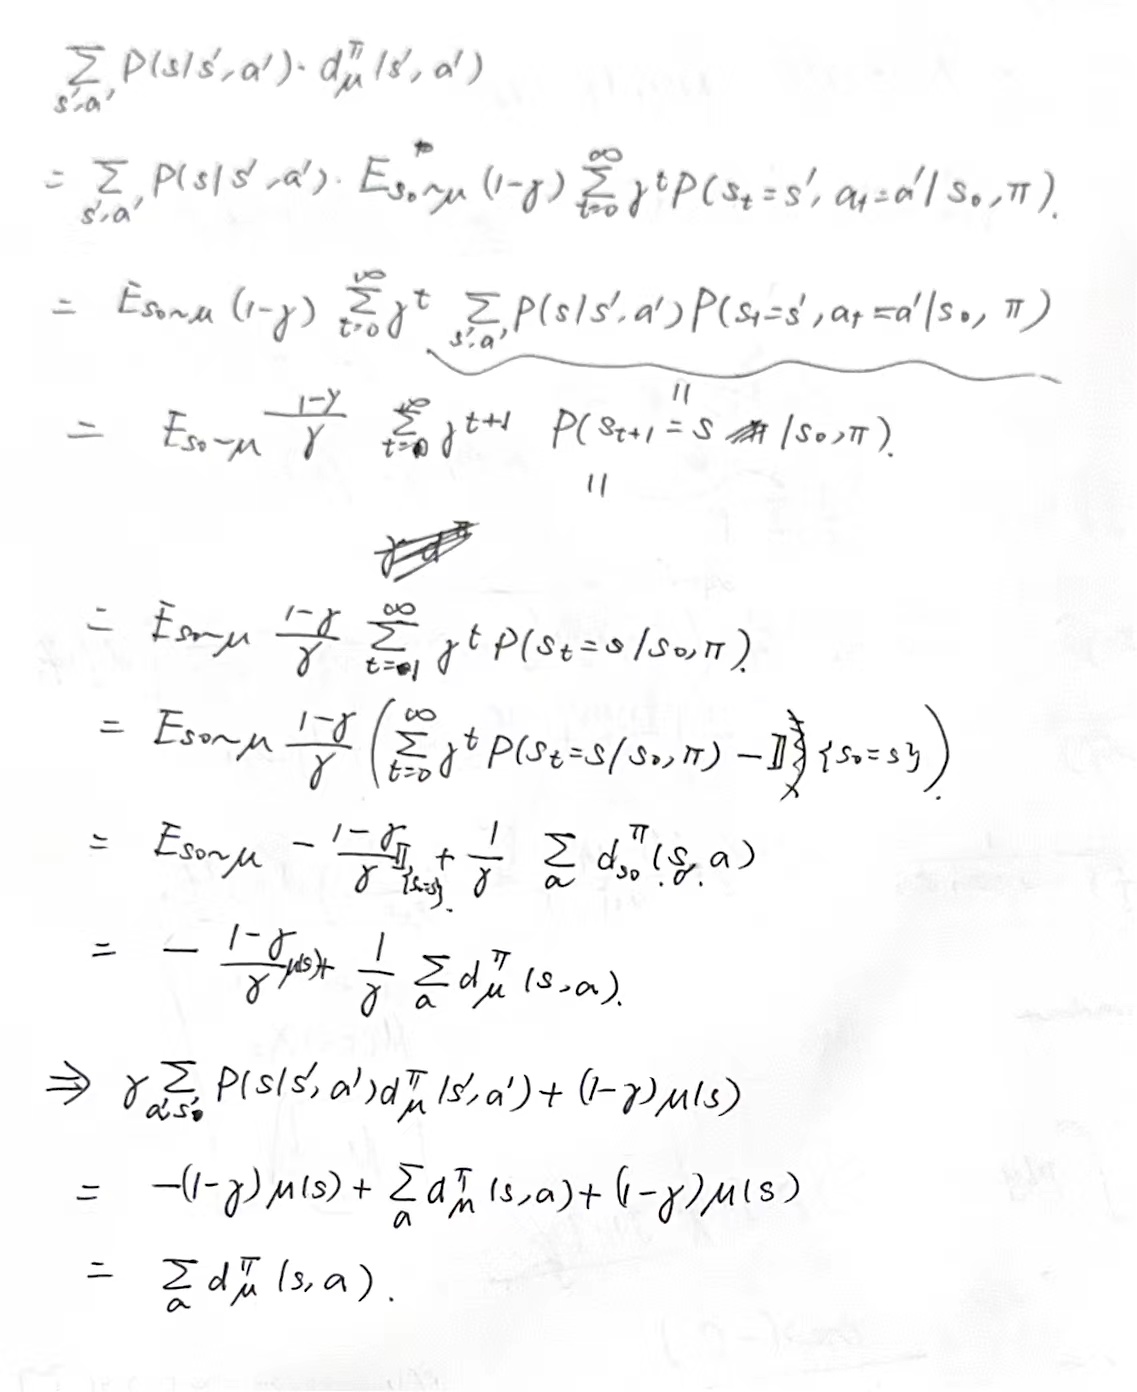 Σ_{s',a'} P(s|s',a')· d^π_μ(s',a')
= Σ_{s',a'} P(s|s',a')· E_{s₀~μ} (1-γ) Σ_{t=0}^{∞} γ^t P(s_t=s', a_t=a'|s₀,π).
= E_{s₀~μ} (1-γ) Σ_{t=0}^{∞} γ^t Σ_{s',a'} P(s|s',a')P(s_t=s',a_t=a'|s₀, π)
॥
= E_{s₀~μ} \frac{1-γ}{γ} Σ_{t=0}^{∞} γ^{t+1} P(s_{t+1}=s |s₀,π).
॥
= E_{s₀~μ} \frac{1-γ}{γ} Σ_{t=1}^{∞} γ^t P(s_t=s|s₀,π).
= E_{s₀~μ} \frac{1-γ}{γ} (Σ_{t=0}^{∞} γ^t P(s_t=s|s₀,π) - 𝕀{s₀=s}).
= E_{s₀~μ} - \frac{1-γ}{γ} 𝕀_{{s₀=s}}. + \frac{1}{γ} Σ_a d^π_{s₀}(s,a)
= - \frac{1-γ}{γ} μ(s)+ \frac{1}{γ} Σ_a d^π_μ(s,a).
⇒ γ Σ_{a',s'} P(s|s',a')d^π_μ(s',a')+(1-γ)μ(s)
= -(1-γ)μ(s)+ Σ_a d^π_μ(s,a)+(1-γ)μ(s)
= Σ_a d^π_μ(s,a).